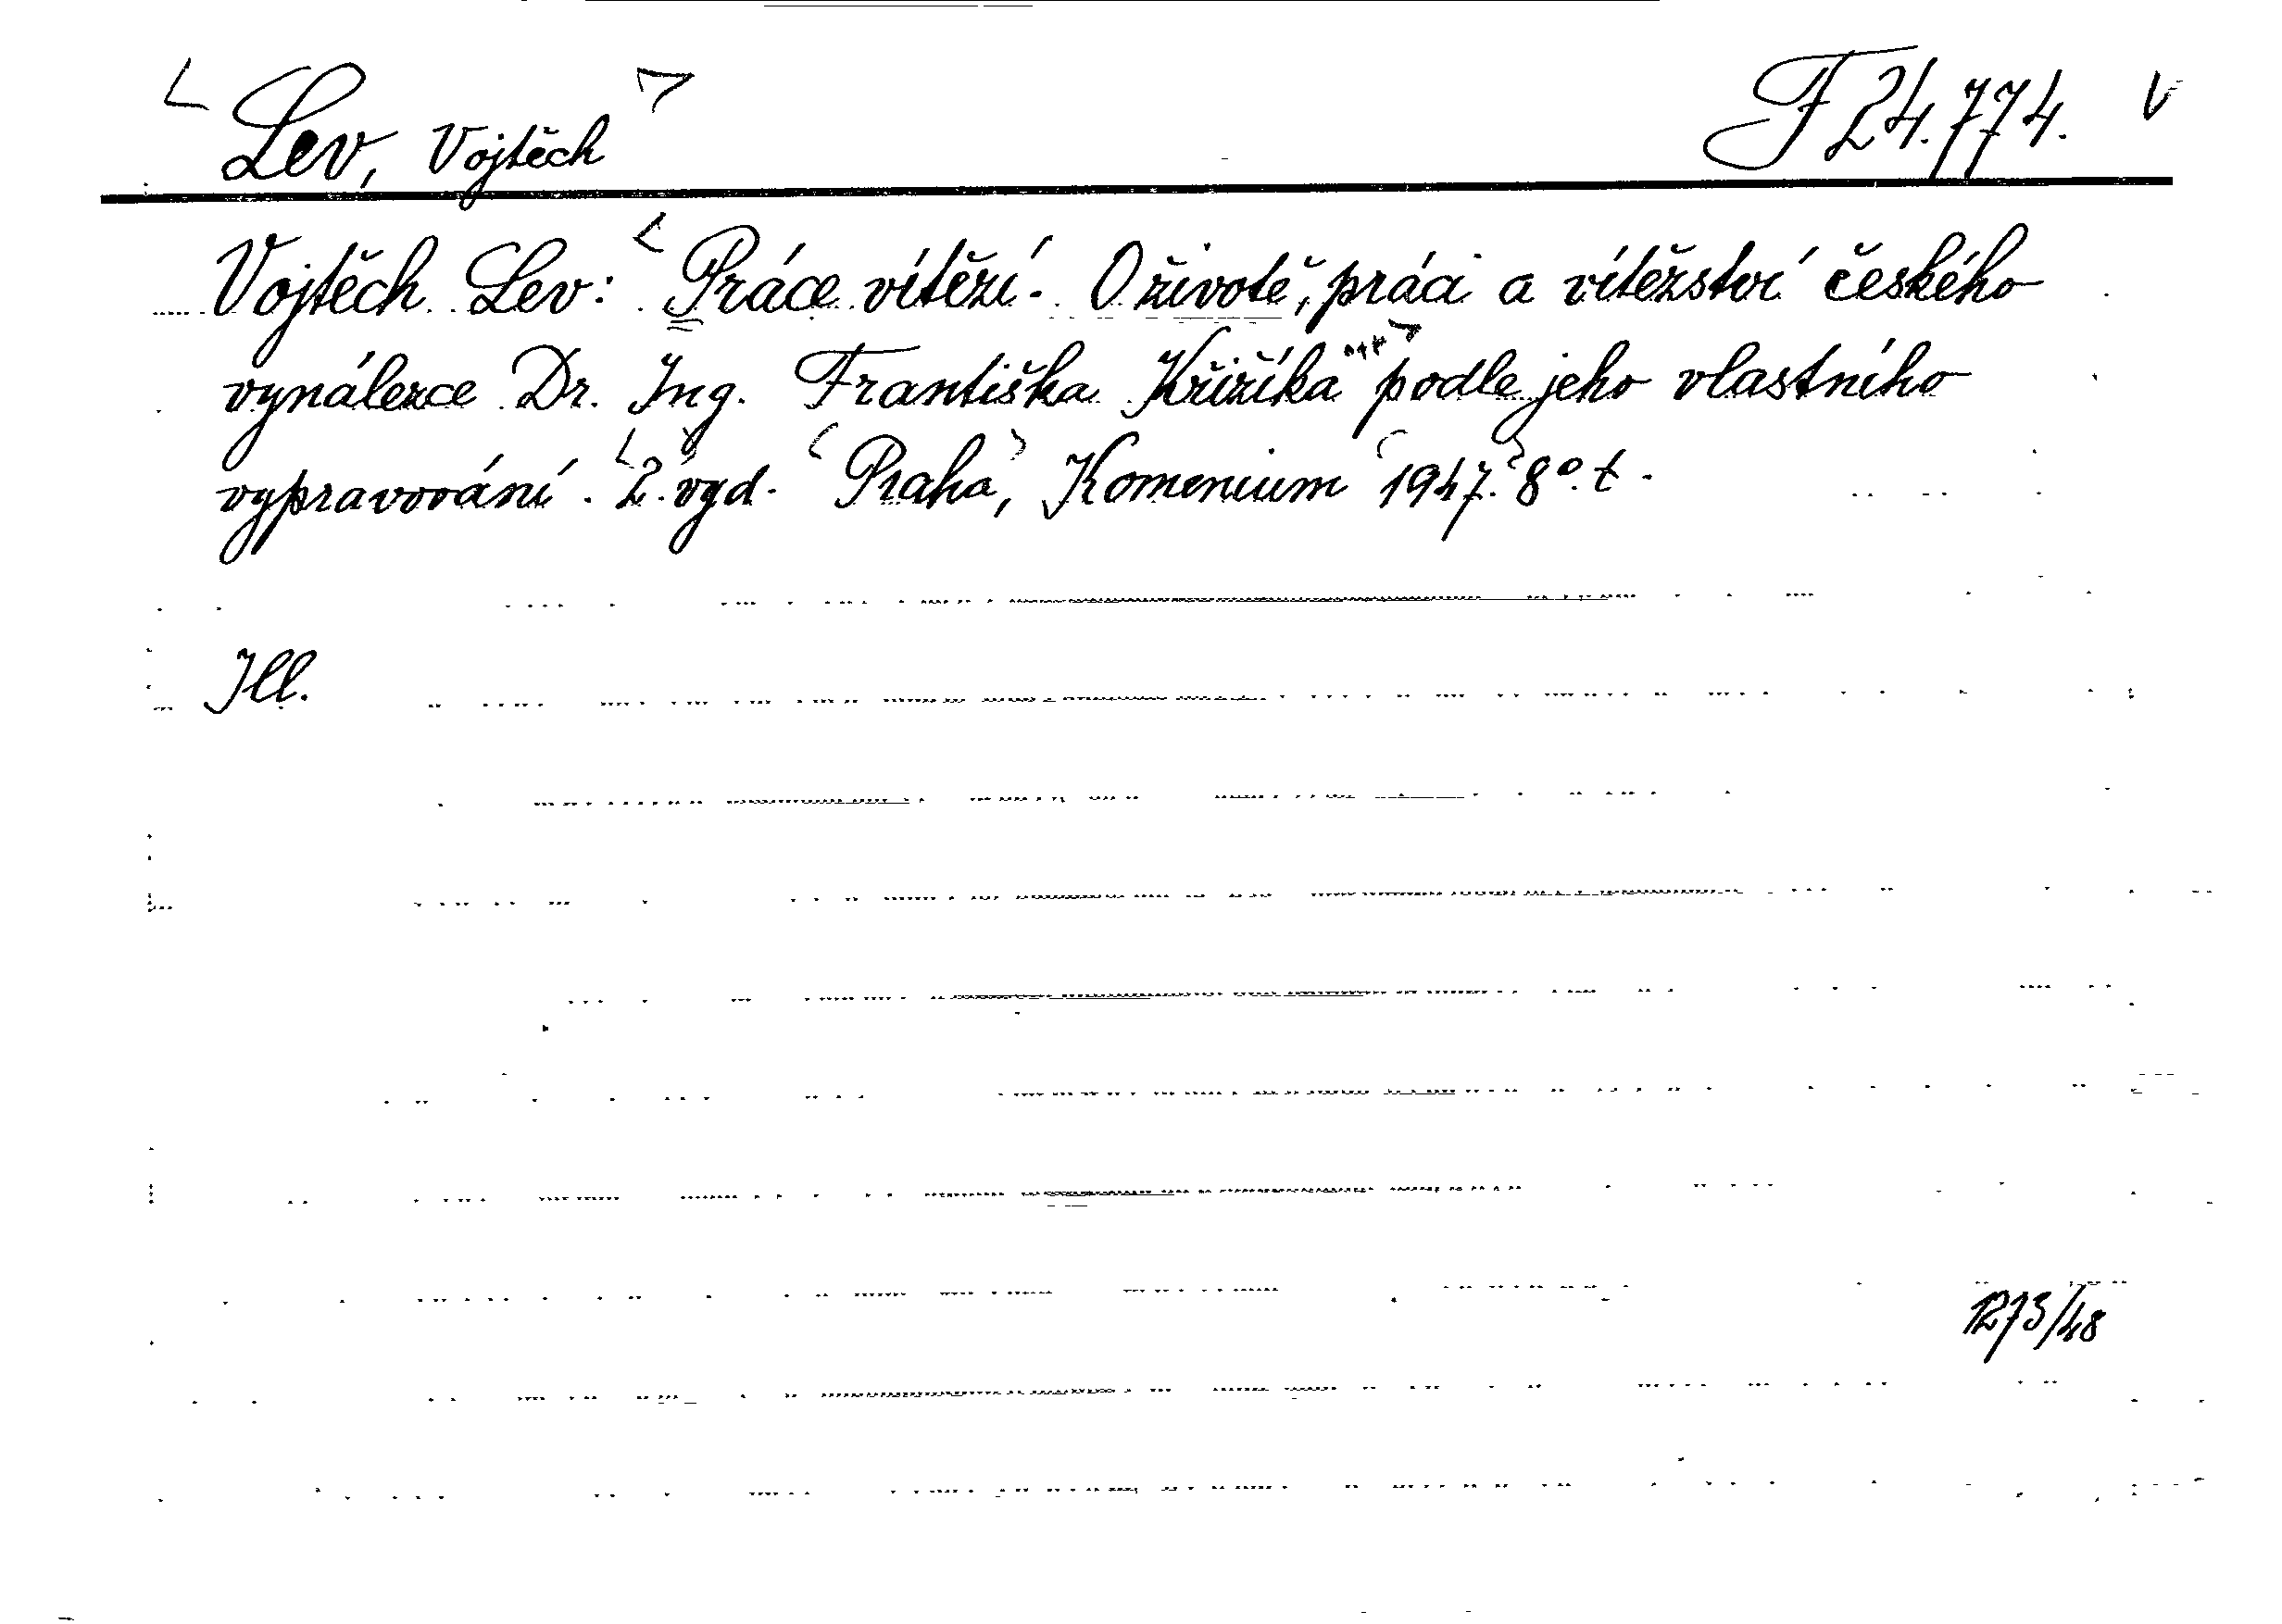 < Lev, Vojtěch > F 24.774. V
Vojtěch Lev: < Práce vítězí. O životě, práci a vítězství českého
vynálezce Dr. Ing. Františka Křižíka ... > podle jeho vlastního
vypravování. <2.> vyd. <Praha>, Komenium <1947.> 8°. t.
Ill.
1273/48